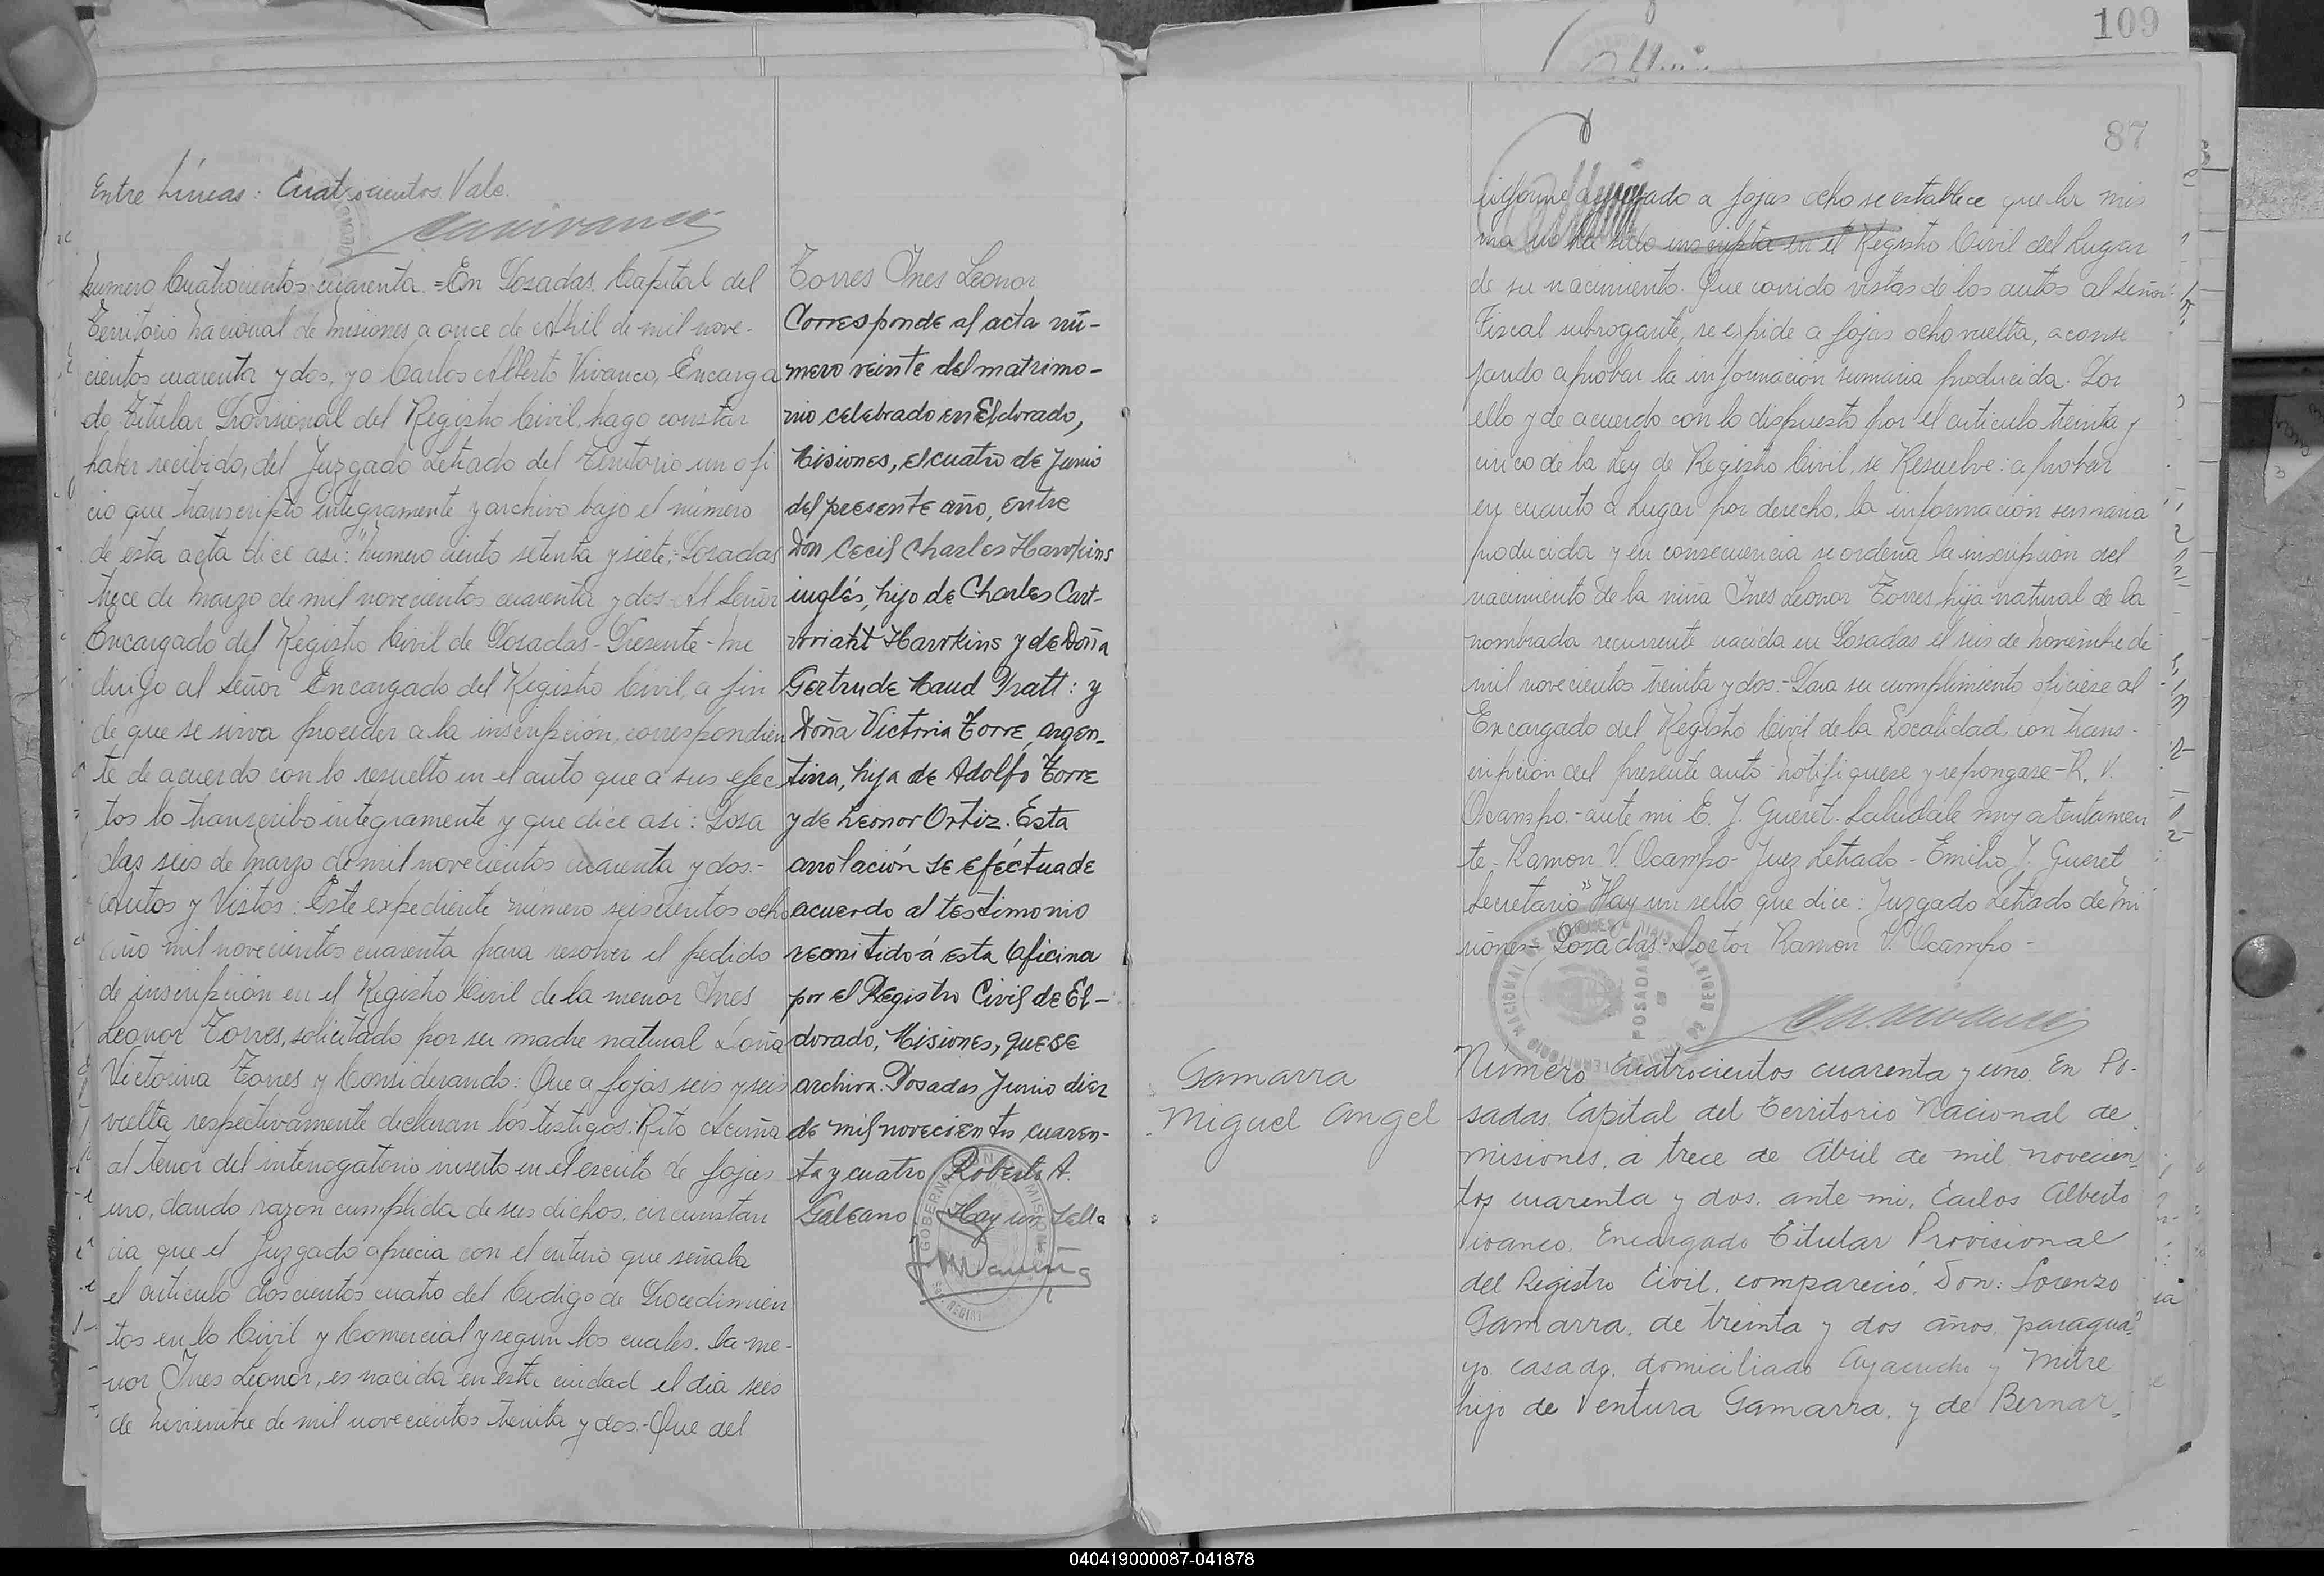 109
Entre Líneas: Cuatrocientos. Vale.
Numero Cuatrocientos cuarenta = En Posadas. Capital del
Territorio Nacional de Misiones a once de Abril de mil nove-
cientos cuarenta y dos, yo Carlos Alberto Vivanco, Encarga
do Titular Provisional del Registro Civil, hago constar
haber recibido, del Juzgado Letrado del Territorio un ofi
cio que transcripto integramente y archivo bajo el número
de esta acta dice asi: "Numero ciento setenta y siete; Posadas
trece de Marzo de mil novecientos cuarenta y dos - Al Señor
Encargado del Registro Civil de Posadas - Presente - Me
dirijo al Señor Encargado del Registro Civil, a fin
de que se sirva proceder a la inscripción, correspondien
te de acuerdo con lo resuelto en el auto que a sus efec
tos lo transcribo integramente y que dice asi: Posa
das seis de Marzo de mil novecientos cuarenta y dos.-
Autos y Vistos: Este expediente número seiscientos ocho
año mil novecientos cuarenta para resolver el pedido
de inscripción en el Registro Civil de la menor Ines
Leonor Torres, solicitado por su madre natural Doña
Victorina Torres y Considerando: Que a fojas seis y seis
vuelta respectivamente declaran los testigos. Rito Acuña
al tenor del interrogatorio inserto en el escrito de fojas
uno, dando razon cumplida de sus dichos, circunstan
cia que el Juzgado aprecia con el criterio que señala
el articulo doscientos cuatro del Codigo de Procedimien
tos en lo Civil y Comercial y segun los cuales. la me-
nor Ines Leonor, es nacida en esta ciudad el dia seis
de Noviembre de mil novecientos treinta y dos.- Que del
Torres Ines Leonor
Corresponde al acta nú-
mero veinte del matrimo-
nio celebrado en Eldorado,
Misiones, el cuatro de Junio
del presente año, entre
Don Cecil Charles Hawkins
inglés, hijo de Charles Cart-
wriaht Hawkins y de Doña
Gertrude Maud Pratt: y
Doña Victoria Torre, argen-
tina, hija de Adolfo Torre
y de Leonor Ortiz. Esta
anotación se eféctua de
acuerdo al testimonio
remitido á esta Oficina
por el Registro Civil de El-
dorado, Misiones, que se
archiva. Posadas Junio diez
de mil novecientos cuaren-
ta y cuatro Roberto A.
Galeano. Hay un Sello
87
informe agregado a fojas ocho se establece que la mis
ma no ha sido inscripta en el Registro Civil del Lugar
de su nacimiento. Que corrido vistas de los autos al Señor
Fiscal subrogante, se expide a fojas ocho vuelta, aconse
jando aprobar la informacion sumaria producida. Por
ello y de acuerdo con lo dispuesto por el articulo treinta y
cinco de la Ley de Registro Civil, se Resuelve: aprobar
en cuanto a lugar por derecho, la informacion sumaria
producida y en consecuencia se ordena la inscripcion del
nacimiento de la niña Ines Leonor Torres, hija natural de la
nombrada recurrente nacida en Posadas el seis de Noviembre de
mil novecientos treinta y dos.- Para su cumplimiento oficiese al
Encargado del Registro Civil de la Localidad, con trans-
cripcion del presente auto - notifiquese y repongase - R. V.
Ocampo.- ante mi E. J. Gueret. Saludale muy atentamen
te - Ramon V. Ocampo - Juez Letrado - Emilio J. Gueret
Secretario" Hay un sello que dice: Juzgado Letrado de Mi
siones - Posadas - Doctor Ramon V. Ocampo -
POSADAS
Gamarra
Miguel Angel
Número Cuatrocientos cuarenta y uno. En Po-
sadas. Capital del Territorio Nacional de
Misiones, a trece de Abril de mil novecien-
tos cuarenta y dos. ante mi, Carlos Alberto
Vivanco, Encargado Titular Provisional
del Registro Civil, compareció, Don: Lorenzo
Gamarra, de treinta y dos años, paragua-
yo, casado, domiciliado Ayacucho y Mitre
hijo de Ventura Gamarra, y de Bernar-
040419000087-041878